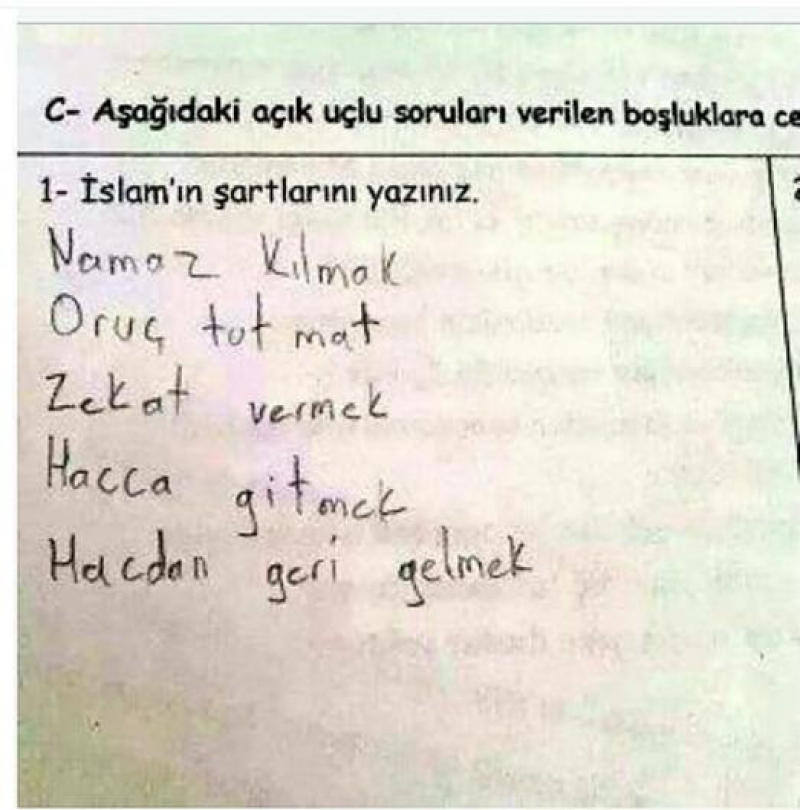 C- Aşağıdaki açık uçlu soruları verilen boşluklara ce
1- İslam'ın şartlarını yazınız.
Namaz Kılmak
Oruç tutmat
Zekat vermek
Hacca gitmek
Hacdan geri gelmek